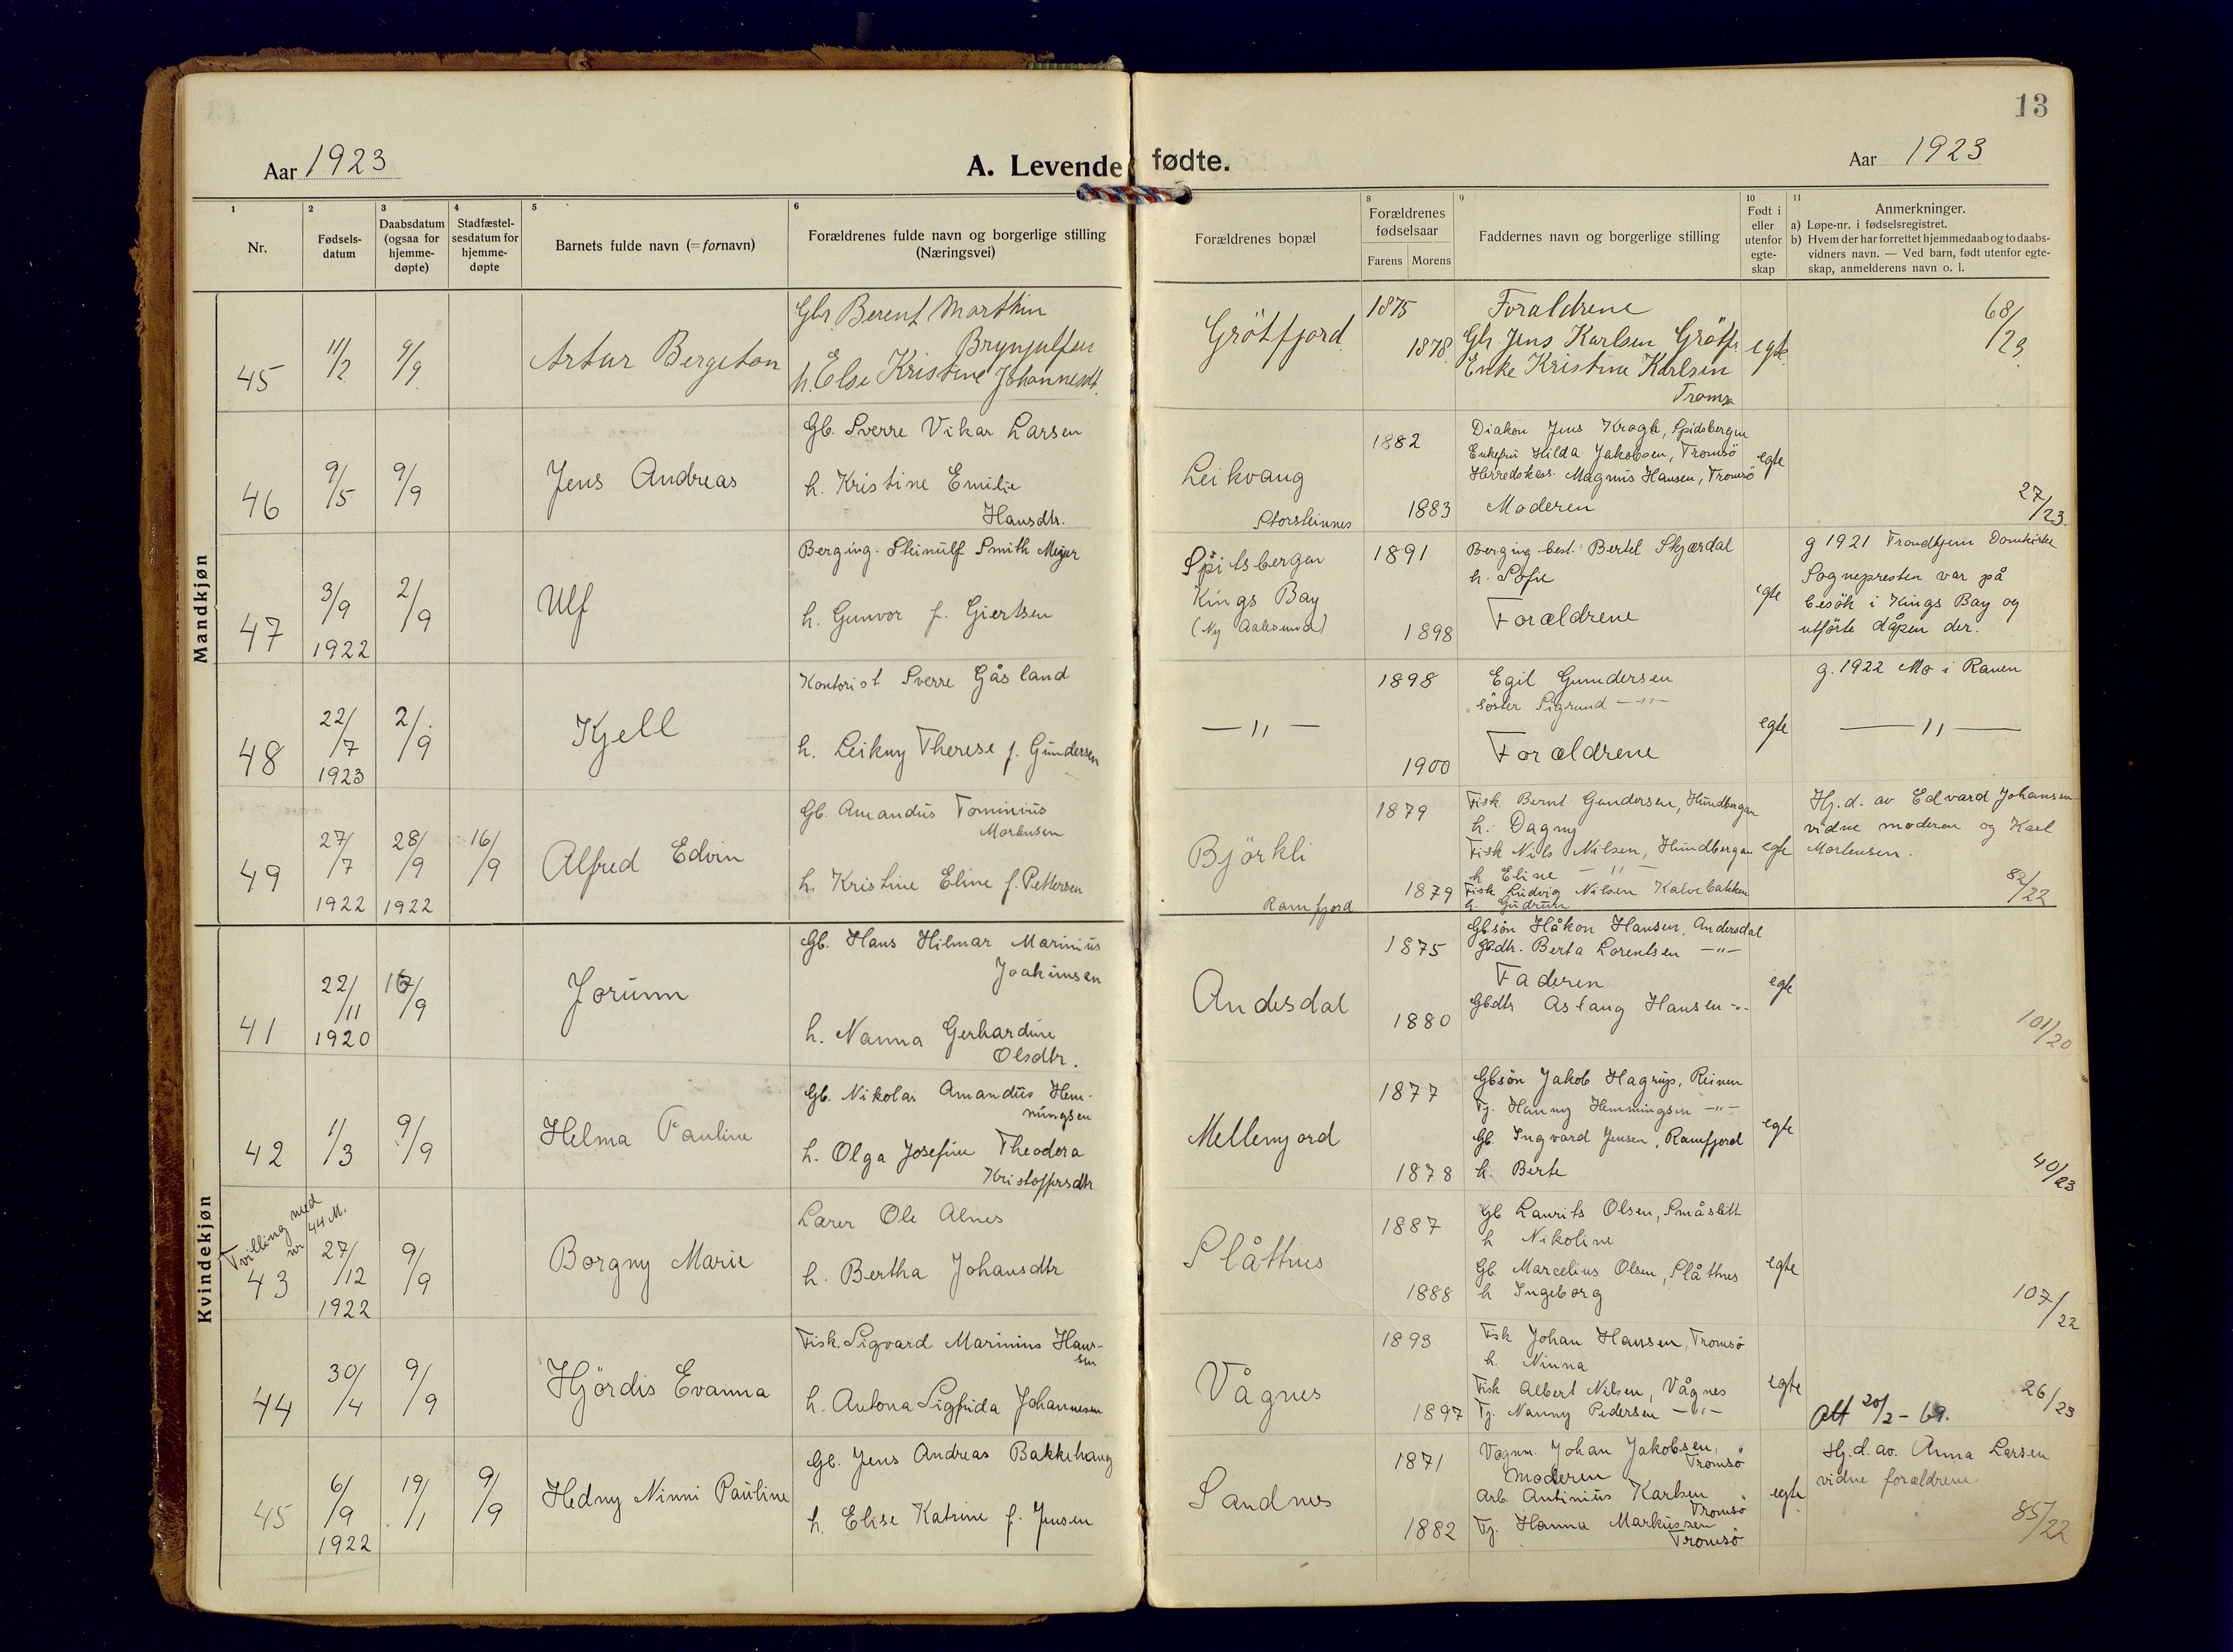 13
Aar 1923
A. Levende fødte.
Aar 1923
1
Nr.
2
Fødsels-
datum
3
Daabsdatum
(ogsaa for
hjemme-
døpte)
4
Stadfæstel-
sesdatum for
hjemme-
døpte
5
Barnets fulde navn (= fornavn)
6
Forældrenes fulde navn og borgerlige stilling
(Næringsvei)
Forældrenes bopæl
8
Forældrenes
fødselsaar
Farens Morens
9
Faddernes navn og borgerlige stilling
10
Født i
eller
utenfor
egte-
skap
11
Anmerkninger.
a) Løpe-nr. i fødselsregistret.
b) Hvem der har forrettet hjemmedaab og to daabs-
vidners navn. — Ved barn, født utenfor egte-
skap, anmelderens navn o. l.
Mandkjøn
45
11/2
9/9
Artur Bergeton
Gbr. Berent Marthin
Brynjulfsen
h. Else Kristine Johannesdt.
Grötfjord
1875
1878
Foraldrene
Gbr. Jens Karlsen Grötfj.
Enke Kristine Karlsen
Tromsø
egte
68/
/23
46
9/5
9/9
Jens Andreas
Gb. Sverre Vikar Larsen
h. Kristine Emilie
Hansdtr.
Leikvang
Storsteinnes
1882
1883
Diakon Jens Kragh, Spidsbergen
Enkefru Hilda Jakobsen, Tromsö
Herredskass. Magnus Hansen, Tromsö
Moderen
egte
27/23.
47
3/9
1922
2/9
Ulf
Berging. Steinulf Smith Meyer
h. Gunvor f. Giertsen
Spitsbergen
Kings Bay
(Ny Aalesund)
1891
1898
Berging. best. Bertel Skjærdal
h. Sofie
Forældrene
egte
g 1921 Trondhjem Domkirke
Sognepresten var på
besök i Kings Bay og
utförte dåpen der.
48
22/7
1923
2/9
Kjell
Kontorist Sverre Gåsland
h. Leikny Therese f. Gundersen
— " —
1898
1900
Egil Gundersen
söster Sigrund — " —
Forældrene
egte
g. 1922 Mo i Ranen
— " —
49
27/7
1922
28/9
1922
16/9
Alfred Edvin
Gb. Amandus Tominius
Mortensen
h. Kristine Eline f. Pettersen
Björkli
Ramfjord
1879
1879
Fisk Bernt Gundersen, Hundbergan
h. Dagny
Fisk Nils Nilsen, Hundbergan
h Eline — " —
Fisk Ludvig Nilsen Kalvebakken
h. Gudrun
egte
Hj.d. av Edvard Johansen
vidne moderen og Karl
Mortensen.
82/22
Kvindekjøn
41
22/11
1920
16/9
Jorunn
Gb. Hans Hilmar Marinius
Joakimsen
h. Nanna Gerhardine
Olsdtr.
Andesdal
1875
1880
Gbsön Håkon Hansen, Andersdal
Gbdtr. Berta Lorentsen — " —
Faderen
Gbdtr Aslaug Hansen - " -
egte
101/20
42
1/3
9/9
Helma Pauline
Gb. Nikolai Amandus Hem-
mingsen
h. Olga Josefine Theodora
Kristoffersdtr
Mellemjord
1877
1878
Gbsön Jakob Hagrup, Reinen
Tj. Hanny Hemmingsen — " —
Gb. Ingvard Jensen, Ramfjord
h. Berte
egte
40/23
Tvilling med
nr 44 M.
43
27/12
1922
9/9
Borgny Marie
Lærer Ole Alnes
h. Bertha Johansdtr
Slåttnes
1887
1888
Gb Laurits Olsen, Småslett
h Nikoline
Gb. Marcelius Olsen, Slåttnes
h Ingeborg
egte
107/22
44
30/4
9/9
Hjördis Evanna
Fisk. Sigvard Marinius Han-
sen
h. Antona Sigfrida Johannesen
Vågnes
1893
1897
Fisk Johan Hansen, Tromsö
h. Ninna
Fisk Albert Nilsen, Vågnes
Tj. Nanny Pedersen — " —
egte
26/23
Att 20/2 - 69.
45
6/9
1922
19/1
9/9
Hedny Ninni Pauline
Gb. Jens Andreas Bakkehaug
h. Elise Katrine f. Jensen
Sandnes
1871
1882
Vognm. Johan Jakobsen,
Tromsö
Moderen
Arb. Antinius Karlsen
Tromsö
Tj. Hanna Markussen
Tromsö
egte
Hj.d. av. Anna Larsen
vidne forældrene
85/22